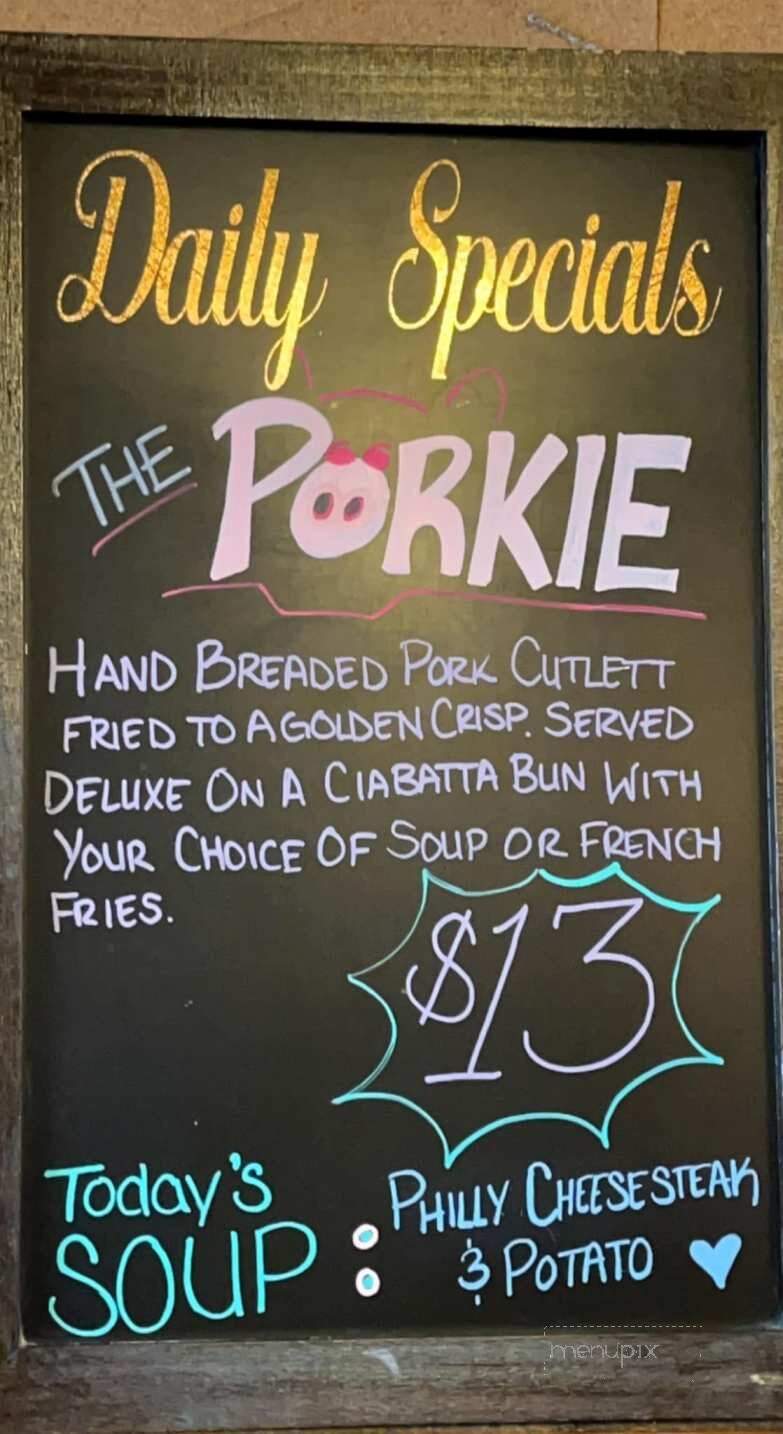 Daily Specials
THE PORKIE
HAND BREADED PORK CUTLETT
FRIED TO A GOLDEN CRISP. SERVED
DELUXE ON A CIABATTA BUN WITH
YOUR CHOICE OF SOUP OR FRENCH
FRIES.
$13
Today's
SOUP :
PHILLY CHEESESTEAK
& POTATO
menupix